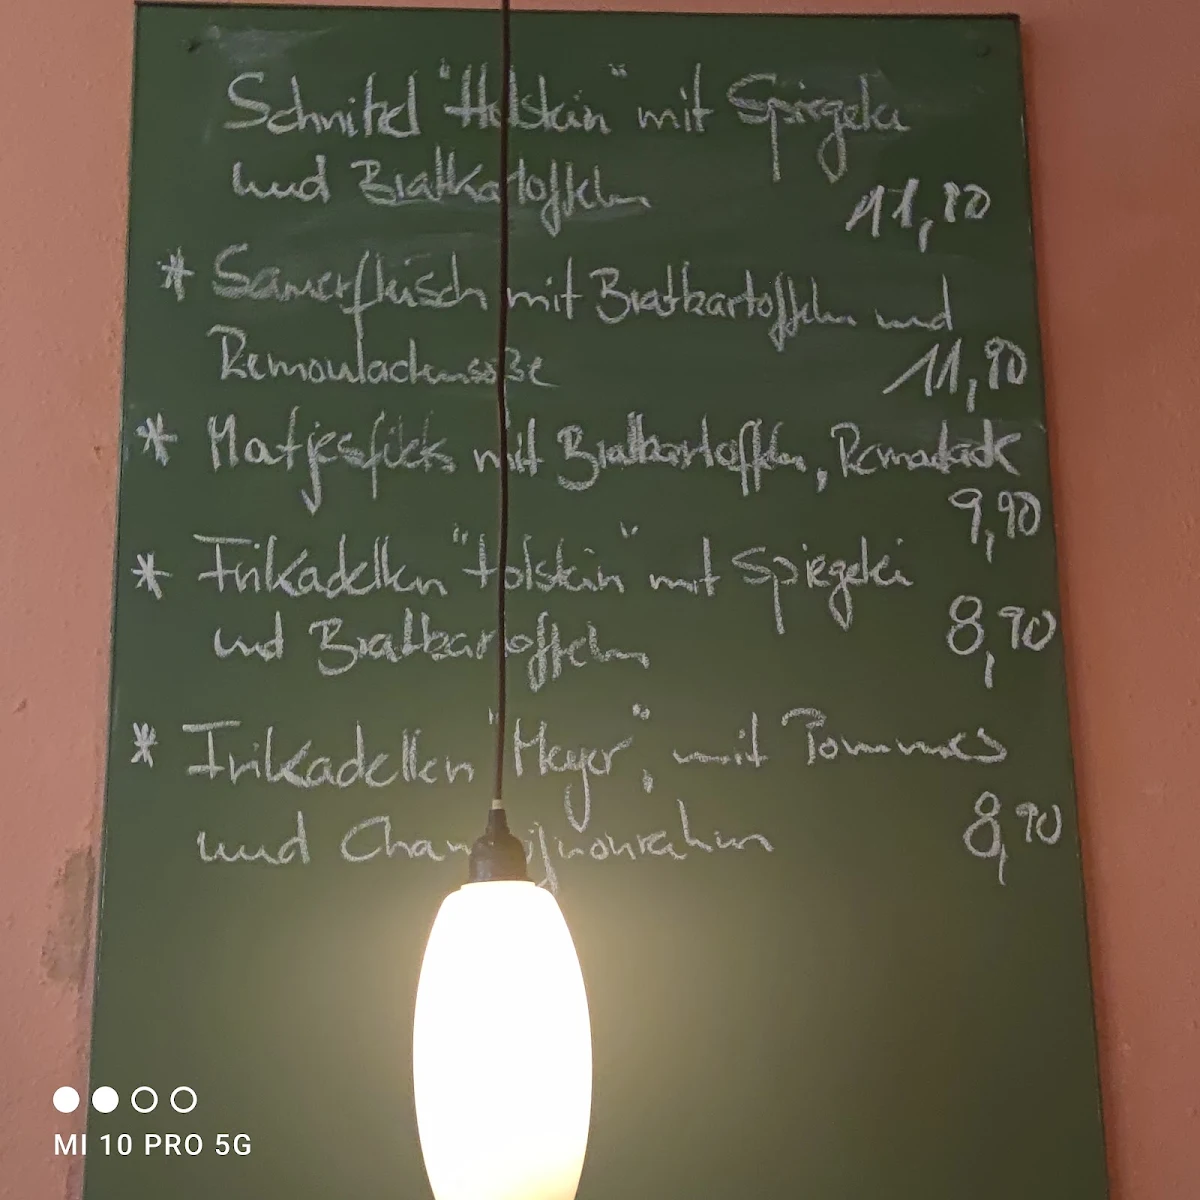 Schnitzel "Holstein" mit Spiegelei
und Bratkartoffeln
11,90
* Sauerfleisch mit Bratkartoffeln und
Remouladensoße
11,90
* Matjesfilets mit Bratkartoffeln,
9,90
* Frikadellen "Holstein" mit Spiegelei
und Bratkartoffeln
8,90
* Frikadellen "Meyer", mit Pommes
und Champignonrahm
8,90
MI 10 PRO 5G